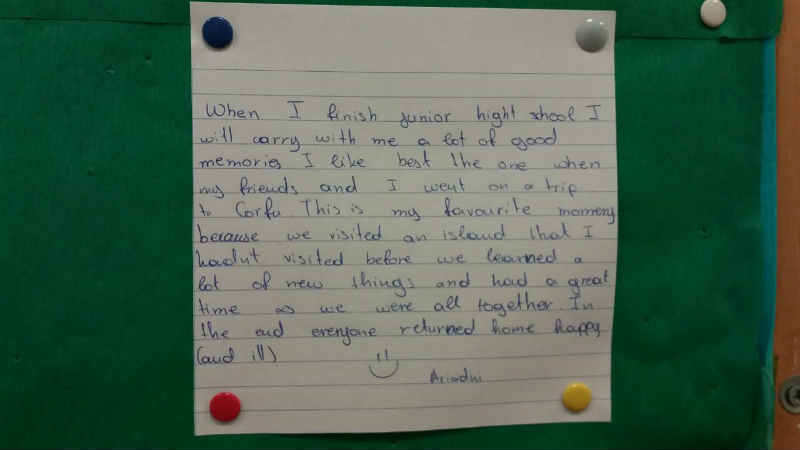 When I finish junior hight shool I
will carry with me a lot of good
memories I like best the one when
my friends and I went on a trip
to Corfu. This is my favourite momery
because we visited an island that I
hadnt visited before we learned a
lot of new things and had a great
time as we were all together. In
the end everyone returned home happy
(and ill)
Ariadni